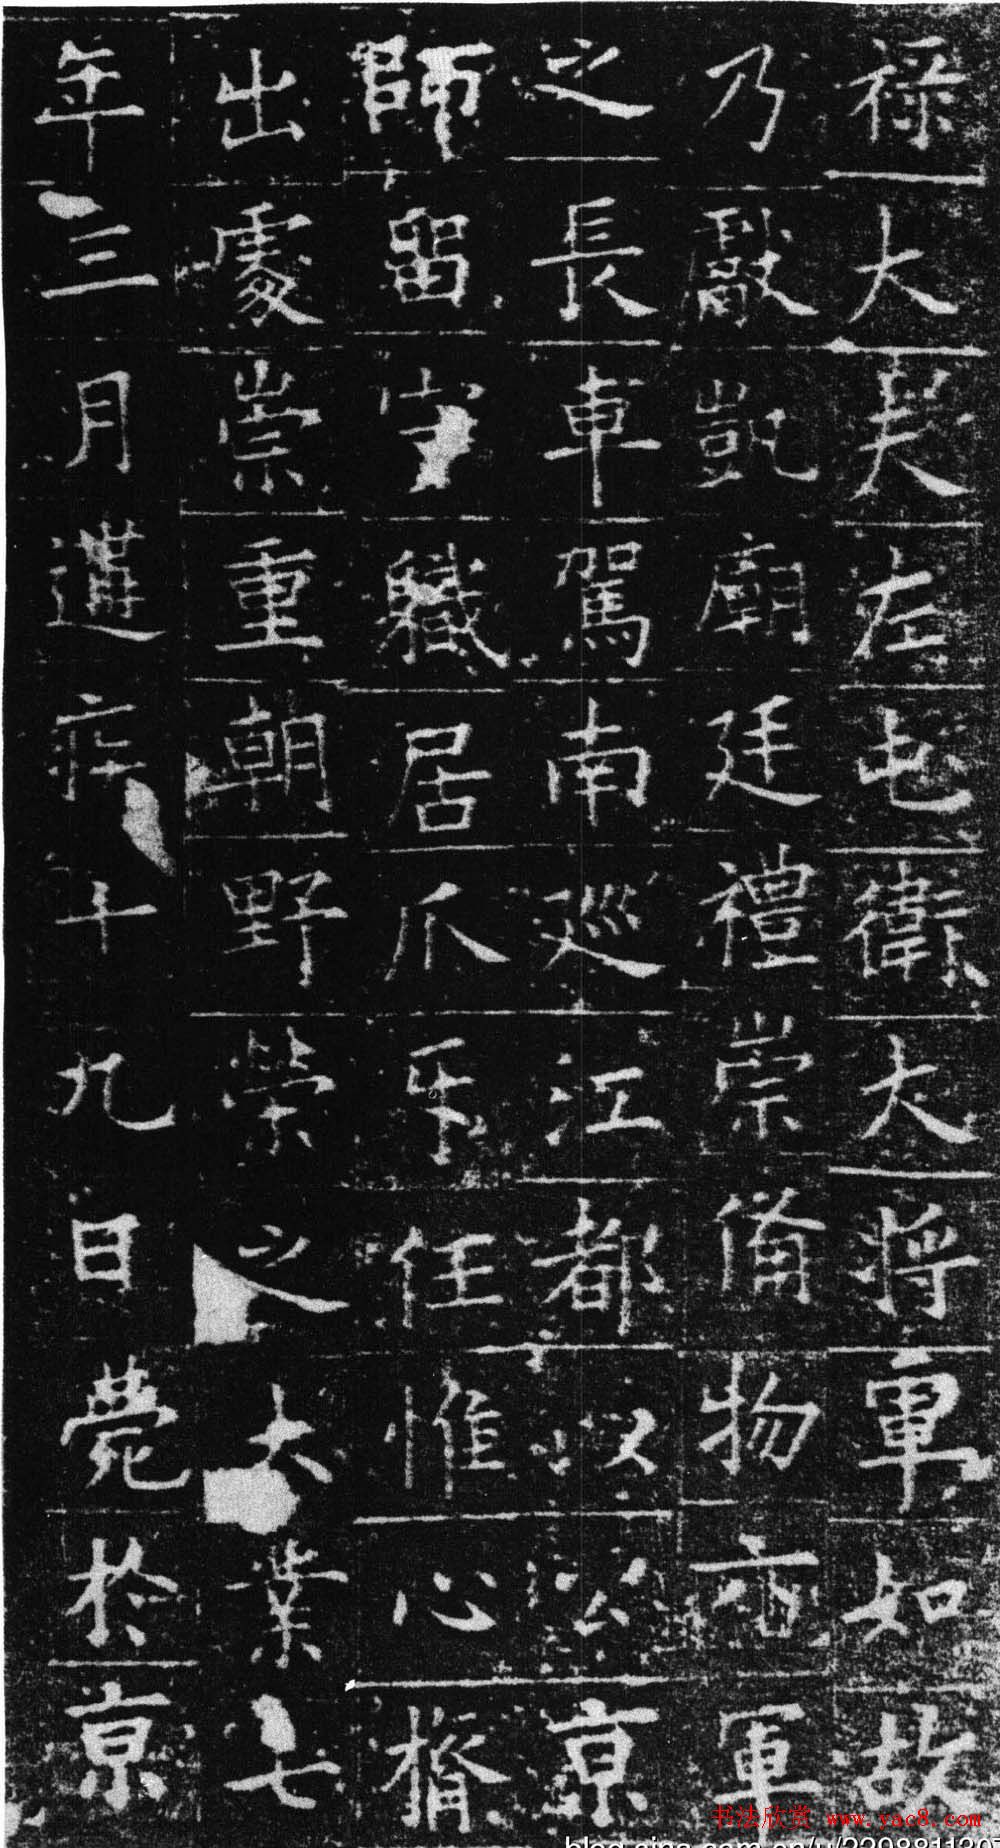 祿大夫左屯衛大將軍如故
乃獻凱廟廷禮崇備物軍
之長車駕南巡江都以公京
師留守職居爪牙任惟心膂
出處崇重朝野榮之大業七
年三月遘疾十九日薨於京
书法欣赏 www.yac8.com